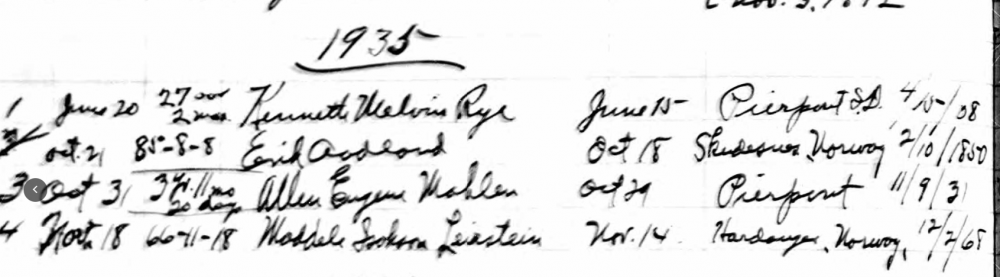 Nov. 3, 18
1935
1 June 20 27 2 mos. Kenneth Melvin Rye June 15 Pierpont S.D. 4/15/08
2 Oct. 21 85-8-8 Erik Aadland Oct 18 Skudesnes, Norway 2/10/1850
3 Oct 31 3 yr. 11 mo 20 days Allen Eugene Mahlen Oct 29 Pierpont 11/9/31
4 18 66-11-18 Nov. 14 Hardanger, Norway, 12/2/68